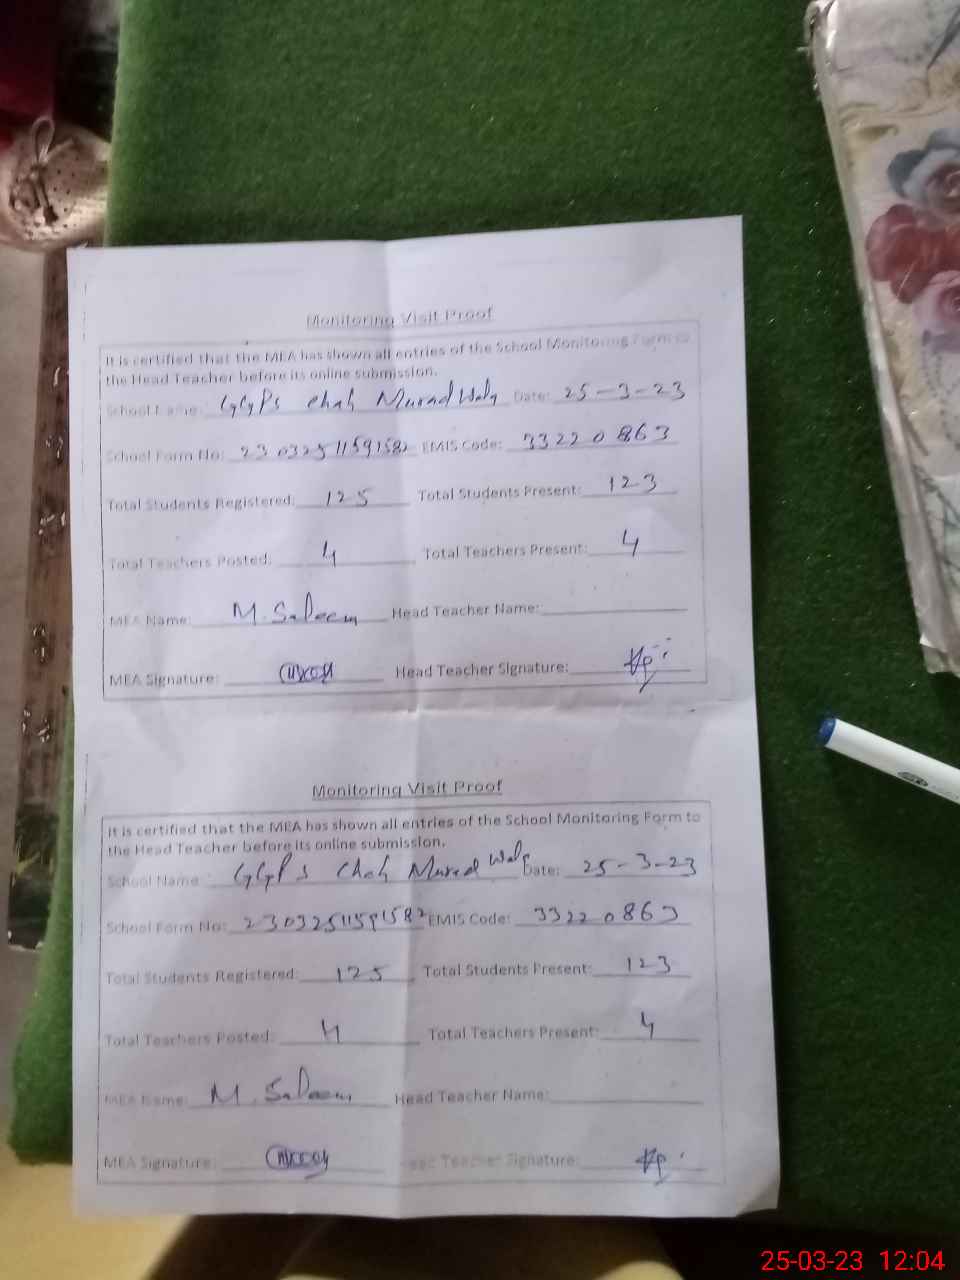 Monitoring Visit Proof
It is certified that the MEA has shown all entries of the School Monitoring Form to
the Head Teacher before its online submission.
School Name: GGPS Chah Murad Wala Date: 25-3-23
School Form No: 2303251159582 EMIS Code: 33220863
Total Students Registered: 125 Total Students Present: 123
Total Teachers Posted: 4 Total Teachers Present: 4
MEA Name: M. Saleem Head Teacher Name:
MEA Signature: Head Teacher Signature:
Monitoring Visit Proof
It is certified that the MEA has shown all entries of the School Monitoring Form to
the Head Teacher before its online submission.
School Name: GGPS Chah Murad Wala Date: 25-3-23
School Form No: 23032511591582 EMIS Code: 33220863
Total Students Registered: 125 Total Students Present: 123
Total Teachers Posted: 4 Total Teachers Present: 4
MEA Name: M. Saleem Head Teacher Name:
MEA Signature: Head Teacher Signature:
25-03-23 12:04